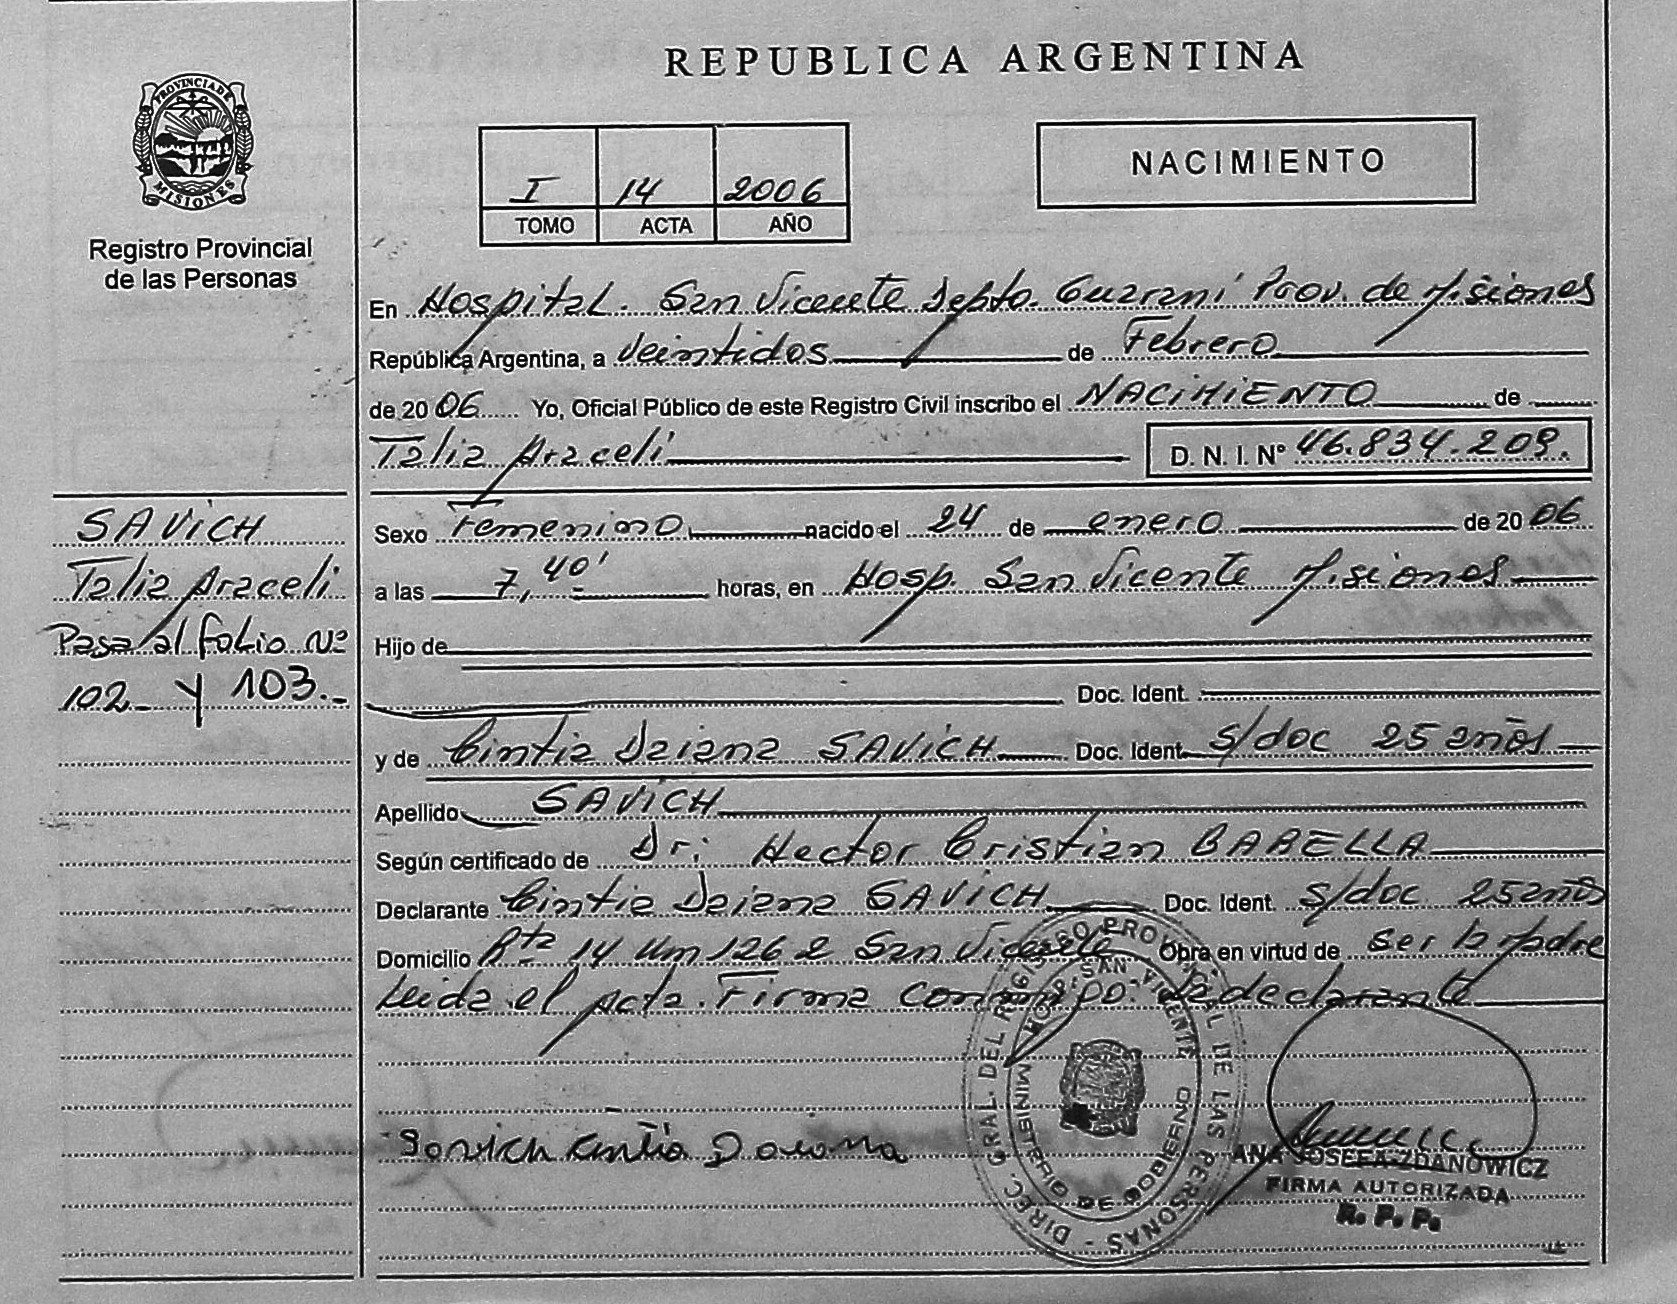 REPUBLICA ARGENTINA
PROVINCIA DE
MISIONES
Registro Provincial
de las Personas
I 14 2006
TOMO ACTA AÑO
NACIMIENTO
En Hospital. San Vicente Depto. Guaraní Prov. de Misiones
República Argentina, a Veintidos de Febrero
de 2006 Yo, Oficial Público de este Registro Civil inscribo el NACIMIENTO de
Talia Araceli D. N. I. Nº 46.834.209.
Sexo Femenino nacido el 24 de enero de 2006
a las 7,40' horas, en Hosp. San Vicente Misiones
Hijo de
Doc. Ident.
y de Cintia Daiana SAVICH Doc. Ident. s/doc 25 años
Apellido SAVICH
Según certificado de Dr: Hector Cristian BABELLA
Declarante Cintia Daiana SAVICH Doc. Ident. s/doc 25 años
Domicilio Rta 14 Km 126 2 San Vicente Obra en virtud de ser la Madre
Leida el Acta. Firma conmigo: la declarante
SAVICH
Talia Araceli
Pasa al folio Nº
102 y 103.
Savich Cintia Daiana
DIREC. GRAL. DEL REGISTRO PROVINCIAL DE LAS PERSONAS -
HOSP. SAN VICENTE
MINISTERIO DE GOBIERNO
ANA JOSEFA ZDANOWICZ
FIRMA AUTORIZADA
R. P. P.